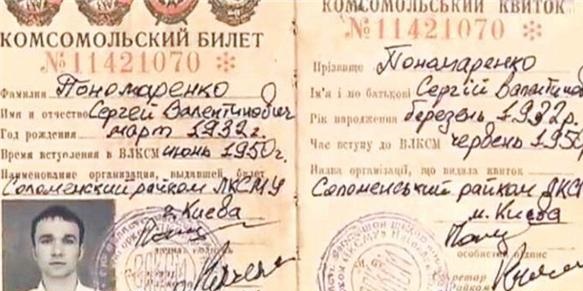 КОМСОМОЛЬСКИЙ БИЛЕТ
№ 11421070
Фамилия Пономаренко
Имя и отчество Сергей Валентинович
Год рождения март 1932 г.
Время вступления в ВЛКСМ июнь 1950 г.
Наименование организации, выдавшей билет
Соломенский райком ЛКСМУ
г. Киева
КОМСОМОЛЬСЬКИЙ КВИТОК
№ 11421070
Прізвище Пономаренко
Ім'я і по батькові Сергій
Рік народження березень 1932р.
Час вступу до ВЛКСМ червень 1950
Назва організації, що видала квиток
Соломенський райком ЛКС
м. Києва